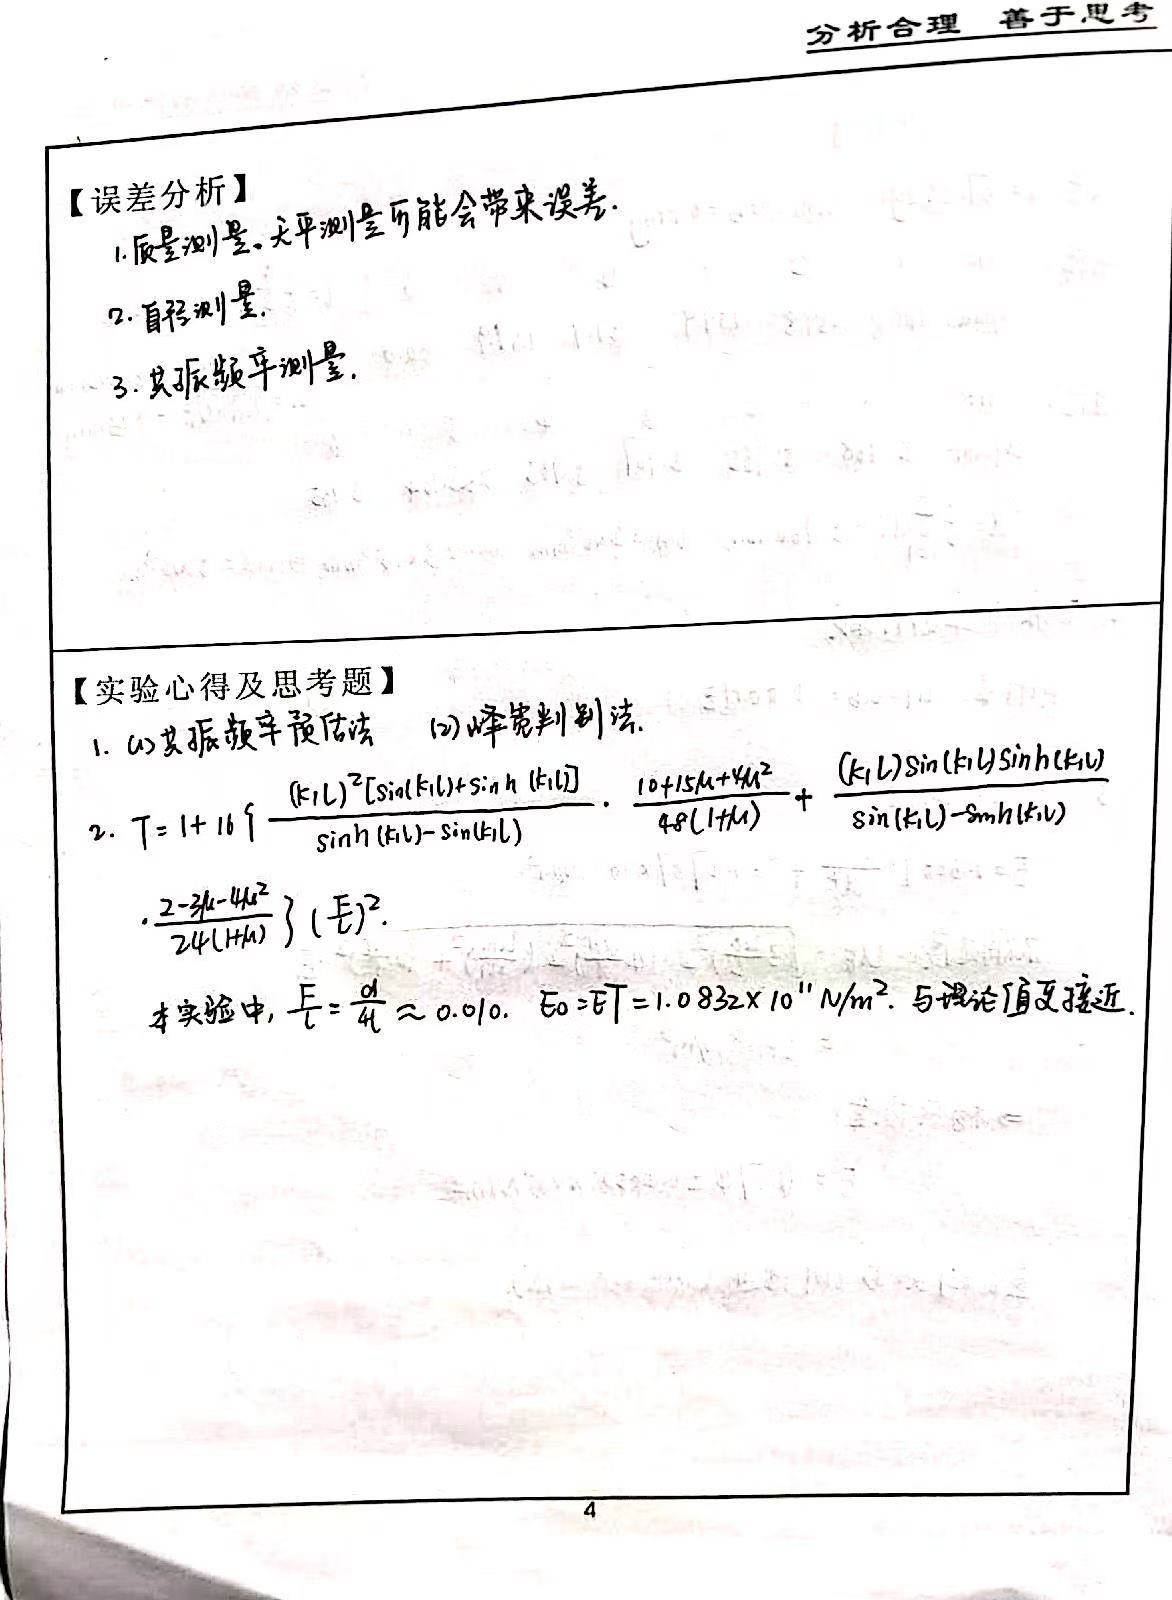 分析合理 善于思考
【误差分析】
1.质量测量。天平测量可能会带来误差.
2.直径测量.
3.共振频率测量.
【实验心得及思考题】
1. (1)共振频率预估法 (2)峰宽判别法.
2. T=1+16{ (k₁l)²[sin(k₁l)+sinh(k₁l)] / sinh(k₁l)-sin(k₁l) · 10+15μ+4μ² / 48(1+μ) + (k₁l)sin(k₁l)sinh(k₁l) / sin(k₁l)-sinh(k₁l)
· 2-3μ-4μ² / 24(1+μ) } (r/l)².
本实验中, r/l = d/4l ≈ 0.010. E₀=ET=1.0832×10¹¹N/m². 与理论值更接近.
4